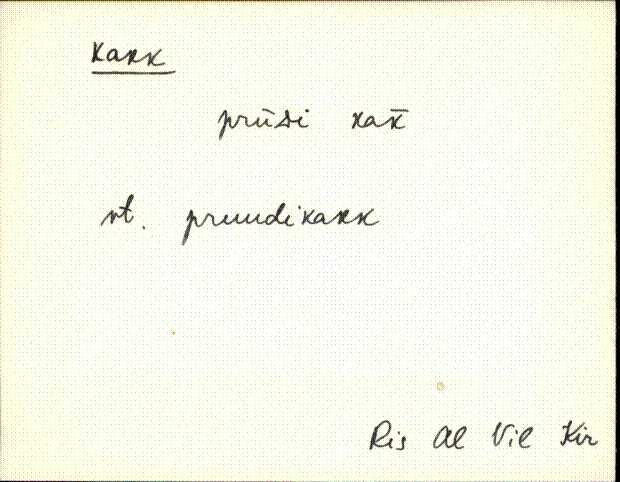 kakk
prūᴅi kak̄
vt. pruudikakk
Ris Al Vil Kir